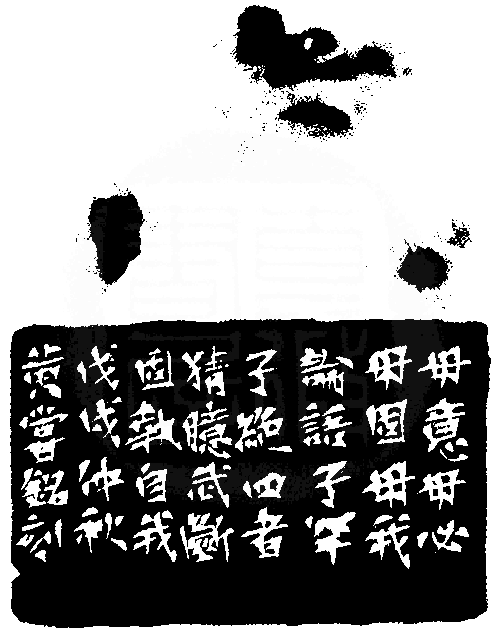 毋意毋必
毋固毋我
論語子罕
子絕四者
猜臆武斷
固執自我
戊戌仲秋
黄嘗銘刻